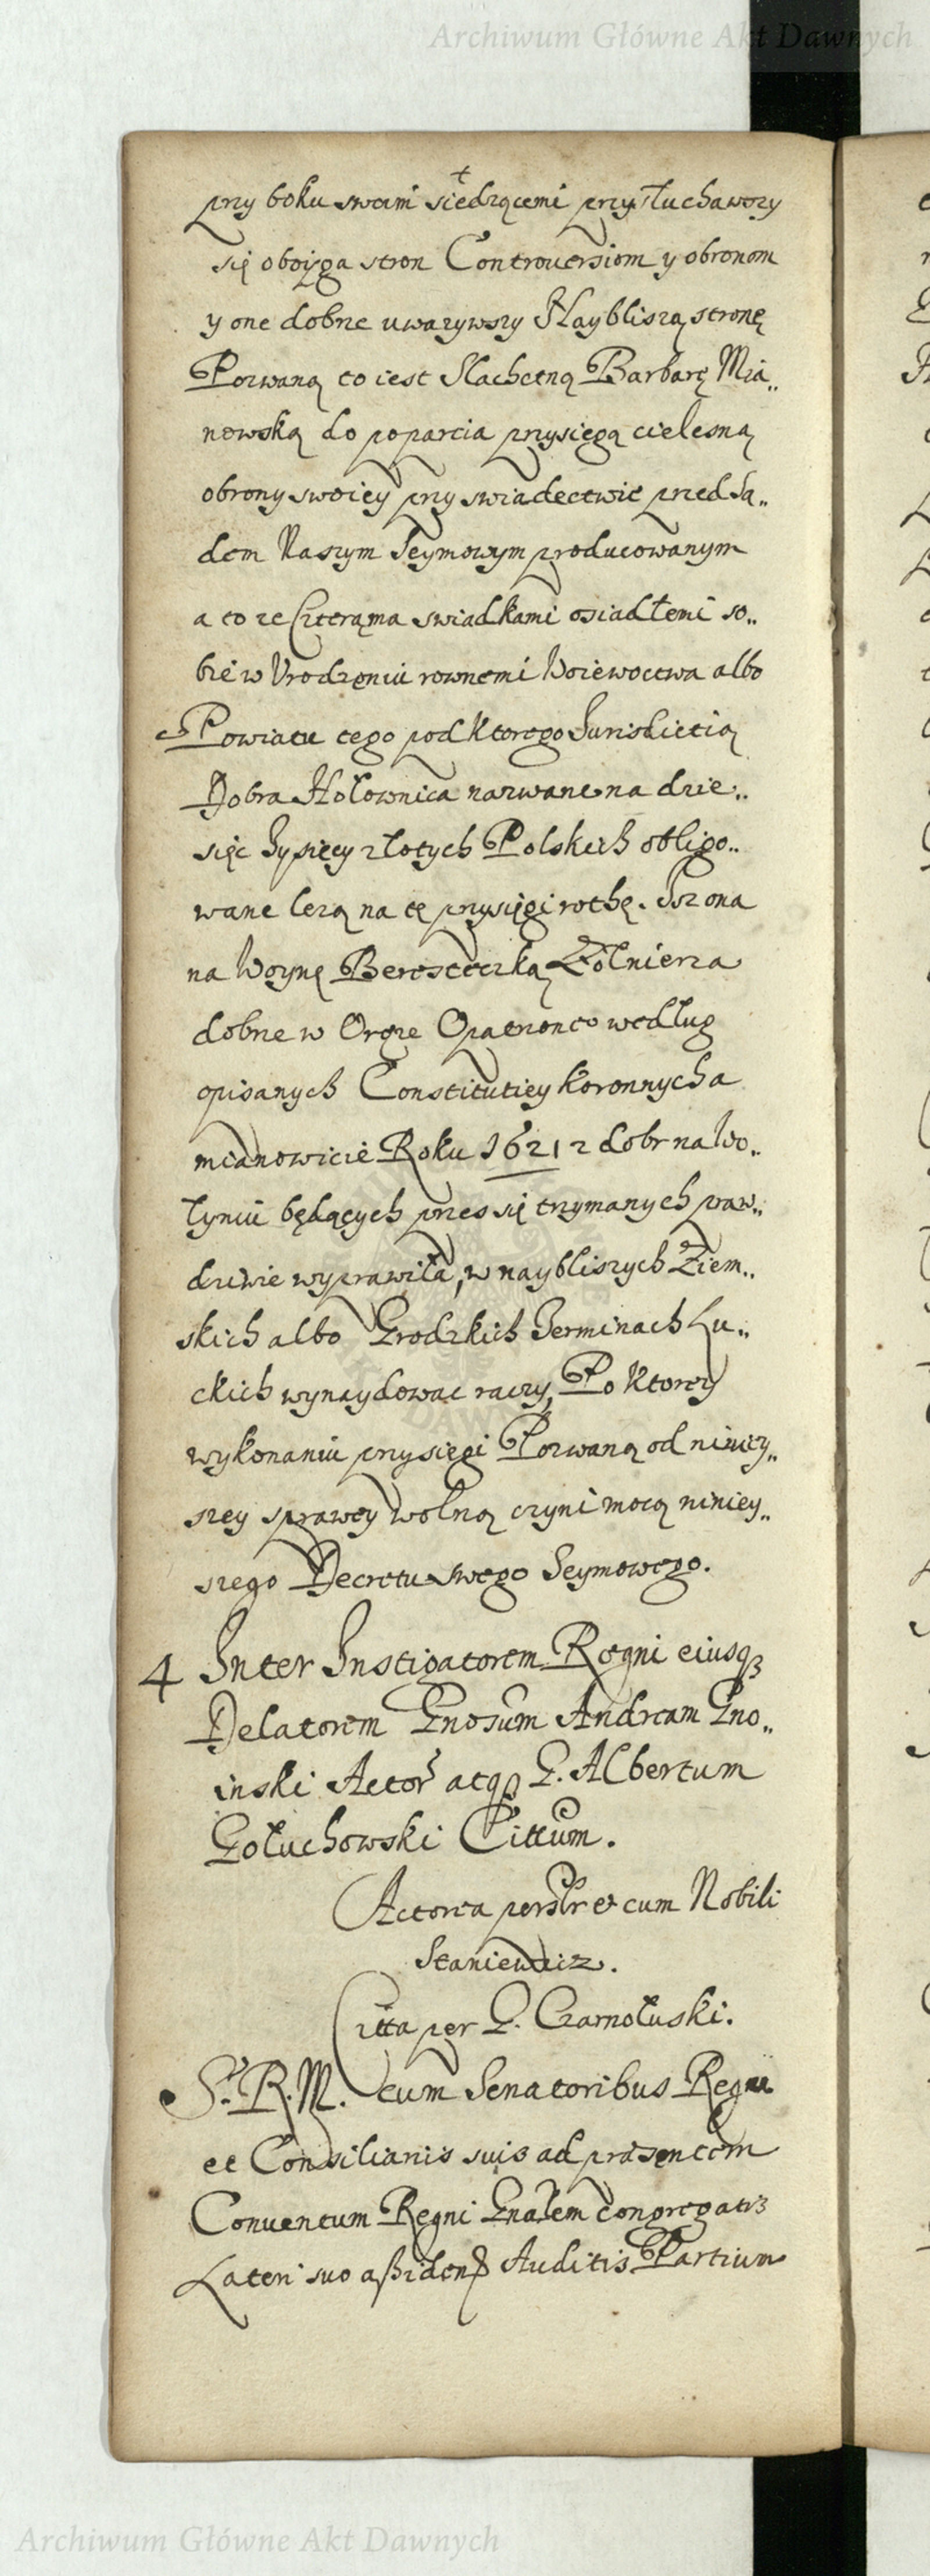 Archiwum Główne Akt Dawnych
przy boku swoim siedzącemi przysłuchawszy
się oboyga stron Controuersiom y obronom
y one dobrze uwazywszy Naybliszą stronę
Pozwaną to iest Slachetną Barbarę Mia„
nowską do poparcia przysięgą cielesną
obrony swoiey przy swiadectwie przed Są„
dem Naszym Seymowym producowanym
a to ze Czterąma swiadkami osiadłemi so„
bie w Vrodzeniu rownemi Woiewoctwa albo
Powiatu tego pod ktorego Jurisdictią
Dobra Hołownica nazwane na dzie„
sięc Tysięcy złotych Polskich obligo„
wane lezą na tę przysięgi rothę. Isz ona
na Woynę Beresteczką Zołnierza
dobrze w Oręze Opatrzonego według
opisanych Constitutiey koronnych a
mianowicie Roku 1621 z dobr na Wo„
łyniu będących przes się trzymanych praw„
dziwie wyprawiła, w naybliszych Ziem„
skich albo Grodzkich Terminach Lu„
ckich wynaydowac raczy, Po ktorey
wykonaniu przysięgi Pozwaną od niniey„
szey sprawy wolną czyni mocą niniey„
szego Decretu swego Seymowego.
4 Inter Instigatorem Regni eiusq3
Delatorem Gnosum Andream Gno„
inski Actor atqȝ G. Albertum
Gołuchowski Cittum.
Actorea personlr et cum Nobili
Staniewicz.
Citta per G. Czarnołuski.
S. R. M. cum Senatoribus Regni
et Consiliariis suis ad præsentem
Conuentum Regni Gnalem congregatis
Lateri suo aßidens Auditis Partium
Archiwum Główne Akt Dawnych